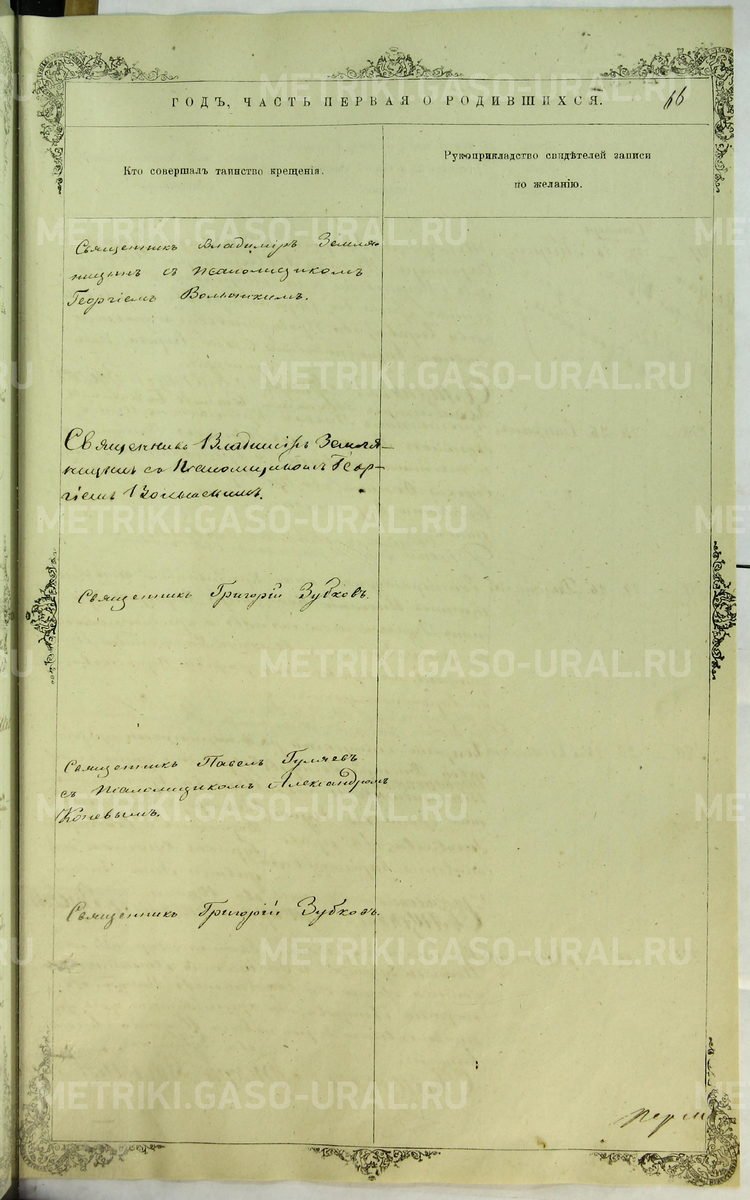 ГОДЪ, ЧАСТЬ ПЕРВАЯ О РОДИВШИХСЯ.
66
Кто совершалъ таинство крещенія.
Рукоприкладство свидѣтелей записи
по желанію.
Священникъ Владиміръ Земля-
ницынъ съ Псаломщикомъ
Георгіемъ
Священникъ Владиміръ Земля-
ницынъ съ Псаломщикомъ Геор-
гіемъ
Священникъ Григорій Зубковъ.
Священникъ Павелъ Гуляевъ
съ Псаломщикомъ Александромъ
Коневымъ.
Священникъ Григорій Зубковъ.
METRIKI.GASO-URAL.RU